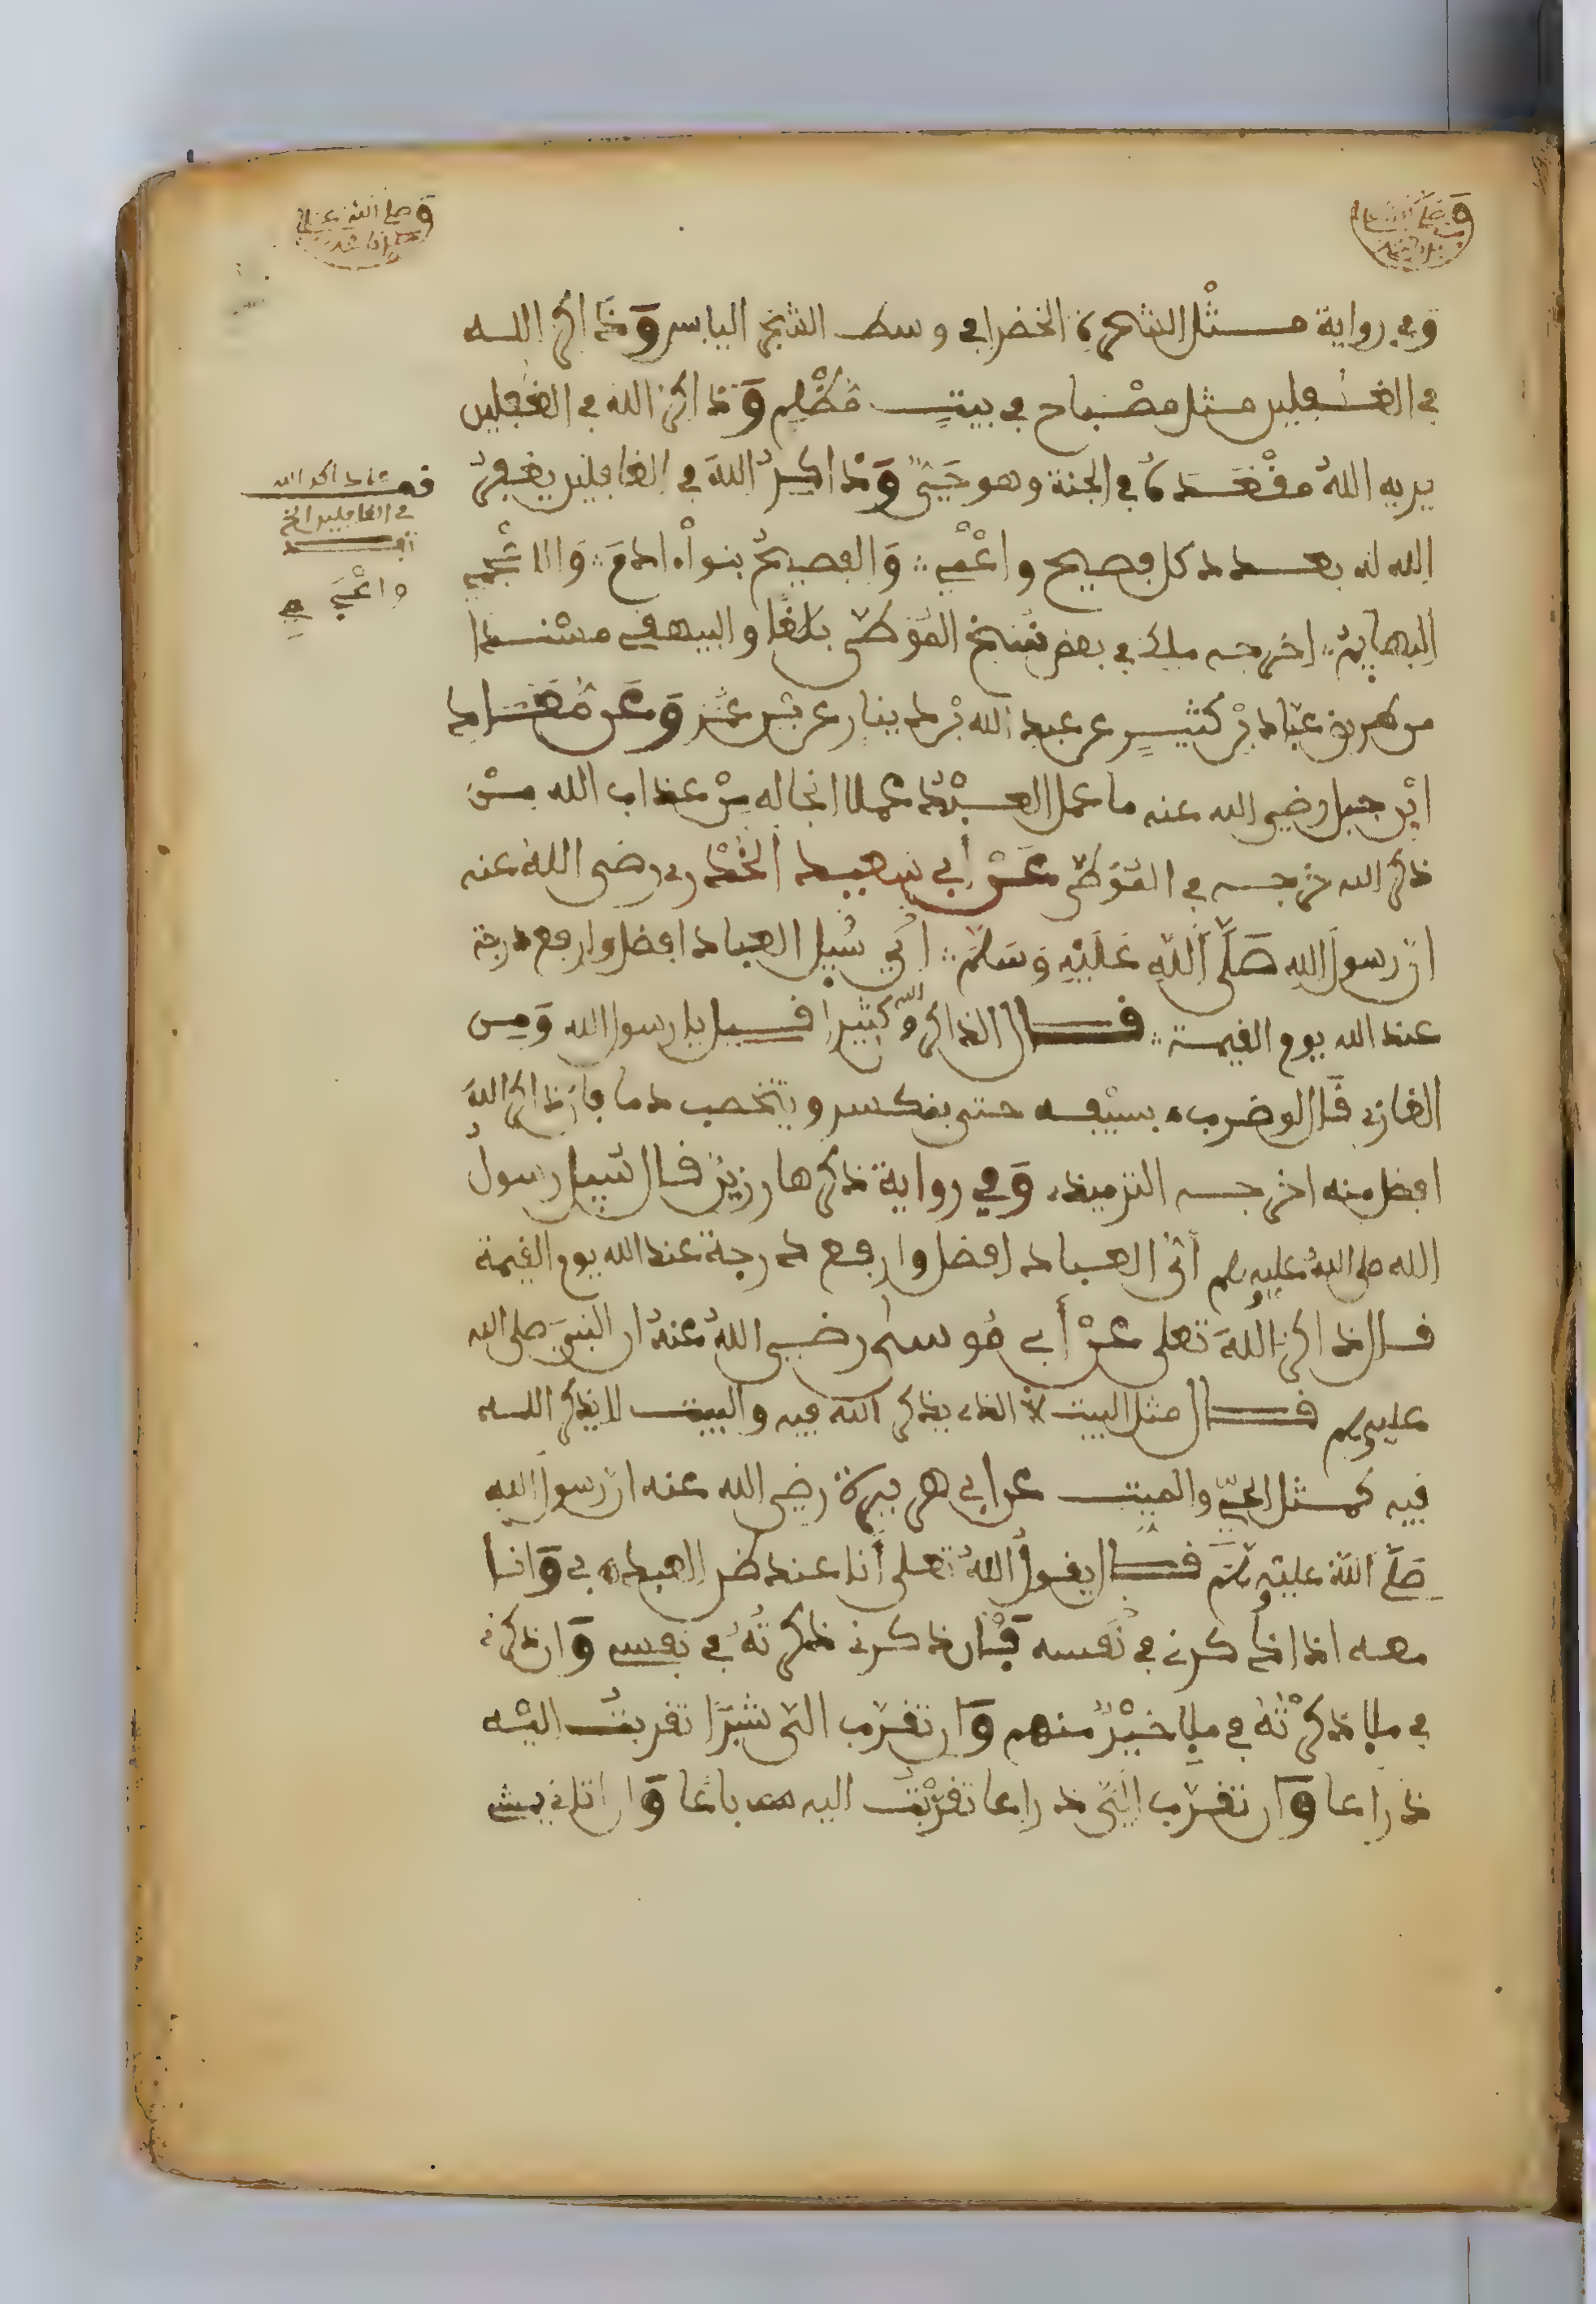 وفي رواية مثل الشجرة الخضرا في وسط الشجر اليابس وذاكر الله
في الغفلين مثل مصباح في بيت مظلم وذاكر الله في الغفلين
يريه الله مقعده في الجنة وهو حي وذاكر الله في الغافلين يغفر
الله له بعدد كل فصيح واعجم والفصيح بنوا ادم والاعجم
البهايم اخرجه ملك في بعض نسخ الموطى بلغا والبيهقي مسندا
من طريق عباد بن كثير عن عبد الله بن دينار عن بن عمر وعن معاد
ابن جبل رضي الله عنه ما عمل العبد عملا انجا له من عذاب الله من
ذكر الله خرجه في الموطى عن أبي سعيد الخدري رضي الله عنه
ان رسول الله صلى الله عليه وسلم سيل اي العباد افضل وارفع درجة
عند الله يوم القيمة قال الذاكرون الله كثيرا قيل يا رسول الله ومن
الغازي قال لو ضرب بسيفه حتى ينكسر ويتخضب دما فان ذاكر الله
افضل منه اخرجه الترميذي وفي رواية ذكرها رزين قال سيل رسول
الله صلى الله عليه وسلم أي العباد افضل وارفع درجة عند الله يوم القيمة
قال الذاكر الله تعلى عن أبي موسى رضي الله عنه ان النبي صلى الله
عليه وسلم قال مثل البيت الذي يذكر الله فيه والبيت لا يذكر الله
فيه كمثل الحي والميت عن ابي هريرة رضي الله عنه ان رسول الله
صلى الله عليه وسلم قال يقول الله تعلى أنا عند ظن العبد بي وانا
معه اذا ذكرني في نفسه فإن ذكرني ذكرته في نفسي وان ذكرني
في ملا ذكرته في ملإ خير منهم وان تقرب الي شبرا تقربت اليه
ذراعا وان تقرب الي ذراعا تقربت اليه باعا وان اتاني يمشي
في الغافلين الخ
واعجم